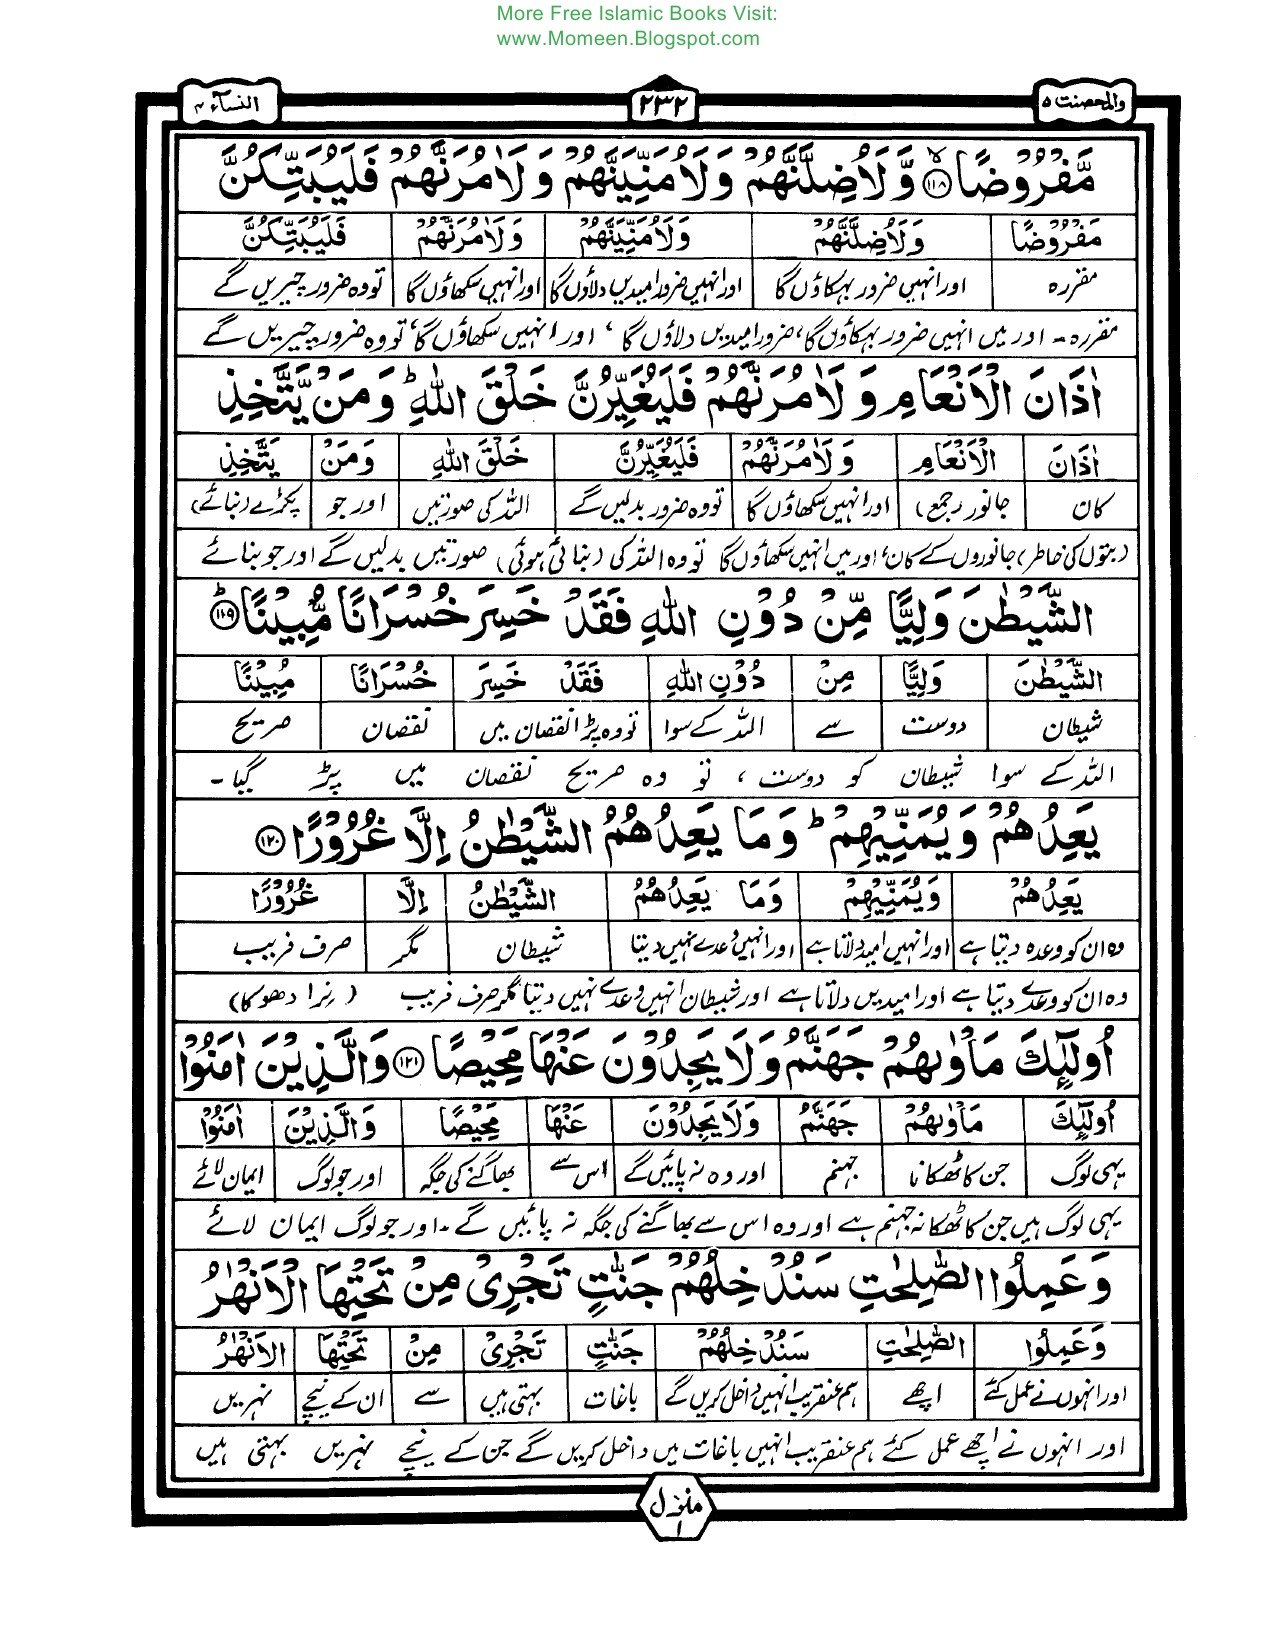 More Free Islamic Books Visit:
www.Momeen.Blogspot.com
والمحصنت ۵ ۲۳۲ النسآء ۴
مَّفْرُوْضًا ﴿۱۱۸﴾ۙ وَّلَاُضِلَّنَّهُمْ وَلَاُمَنِّیَنَّهُمْ وَلَاٰمُرَنَّهُمْ فَلَیُبَتِّکُنَّ
مَفْرُوْضًا وَلَاُضِلَّنَّهُمْ وَلَاُمَنِّیَنَّهُمْ وَلَاٰمُرَنَّهُمْ فَلَیُبَتِّکُنَّ
مقررہ اور انہیں ضرور بہکاؤں گا اور انہیں ضرور امیدیں دلاؤں گا اور انہیں سکھاؤں گا تو وہ ضرور چیریں گے
مقررہ ۔ اور میں انہیں ضرور بہکاؤں گا، ضرور امیدیں دلاؤں گا ، اور انہیں سکھاؤں گا، تو وہ ضرور چیریں گے
اٰذَانَ الْاَنْعَامِ وَلَاٰمُرَنَّهُمْ فَلَیُغَیِّرُنَّ خَلْقَ اللّٰهِ ؕ وَمَنْ یَّتَّخِذِ
اٰذَانَ الْاَنْعَامِ وَلَاٰمُرَنَّهُمْ فَلَیُغَیِّرُنَّ خَلْقَ اللّٰهِ وَمَنْ یَتَّخِذِ
کان جانور (جمع) اور انہیں سکھاؤں گا تو وہ ضرور بدلیں گے اللہ کی صورتیں اور جو پکڑے (بنائے)
(بتوں کی خاطر) جانوروں کے کان، اور میں انہیں سکھاؤں گا تو وہ اللہ کی (بنائی ہوئی) صورتیں بدلیں گے اور جو بنائے
الشَّیْطٰنَ وَلِیًّا مِّنْ دُوْنِ اللّٰهِ فَقَدْ خَسِرَ خُسْرَانًا مُّبِیْنًا ﴿۱۱۹﴾ؕ
الشَّیْطٰنَ وَلِیًّا مِنْ دُوْنِ اللّٰهِ فَقَدْ خَسِرَ خُسْرَانًا مُبِیْنًا
شیطان دوست سے اللہ کے سوا تو وہ پڑا نقصان میں نقصان صریح
اللہ کے سوا شیطان کو دوست ، تو وہ صریح نقصان میں پڑ گیا ۔
یَعِدُهُمْ وَیُمَنِّیْهِمْ ؕ وَمَا یَعِدُهُمُ الشَّیْطٰنُ اِلَّا غُرُوْرًا ﴿۱۲۰﴾
یَعِدُهُمْ وَیُمَنِّیْهِمْ وَمَا یَعِدُهُمُ الشَّیْطٰنُ اِلَّا غُرُوْرًا
وہ ان کو وعدہ دیتا ہے اور انہیں امید دلاتا ہے اور انہیں وعدے نہیں دیتا شیطان مگر صرف فریب
وہ ان کو وعدے دیتا ہے اور امیدیں دلاتا ہے اور شیطان انہیں وعدے نہیں دیتا مگر صرف فریب (نرا دھوکا)
اُولٰٓئِكَ مَاْوٰىهُمْ جَهَنَّمُ وَلَا یَجِدُوْنَ عَنْهَا مَحِیْصًا ﴿۱۲۱﴾ وَالَّذِیْنَ اٰمَنُوْا
اُولٰٓئِكَ مَاْوٰىهُمْ جَهَنَّمُ وَلَا یَجِدُوْنَ عَنْهَا مَحِیْصًا وَالَّذِیْنَ اٰمَنُوْا
یہی لوگ جن کا ٹھکانا جہنم اور وہ نہ پائیں گے اس سے بھاگنے کی جگہ اور جو لوگ ایمان لائے
یہی لوگ ہیں جن کا ٹھکانہ جہنم ہے اور وہ اس سے بھاگنے کی جگہ نہ پائیں گے ۔ اور جو لوگ ایمان لائے
وَعَمِلُوا الصّٰلِحٰتِ سَنُدْخِلُهُمْ جَنّٰتٍ تَجْرِیْ مِنْ تَحْتِهَا الْاَنْهٰرُ
وَعَمِلُوا الصّٰلِحٰتِ سَنُدْخِلُهُمْ جَنّٰتٍ تَجْرِیْ مِنْ تَحْتِهَا الْاَنْهٰرُ
اور انہوں نے عمل کئے اچھے ہم عنقریب انہیں داخل کریں گے باغات بہتی ہیں سے ان کے نیچے نہریں
اور انہوں نے اچھے عمل کئے ہم عنقریب انہیں باغات میں داخل کریں گے جن کے نیچے نہریں بہتی ہیں
منزل ۱